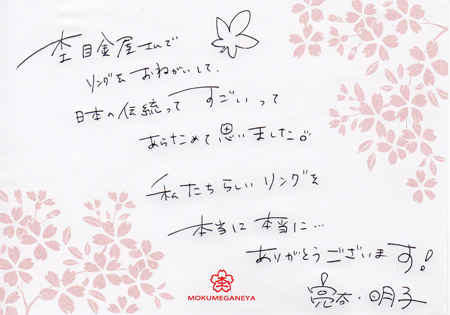 杢目金屋さんで
リングをおねがいして、
日本の伝統って すごいって
あらためて思いました。
私たちらしい リングを
本当に 本当に…
ありがとうございます!
亮・明子
MOKUMEGANEYA